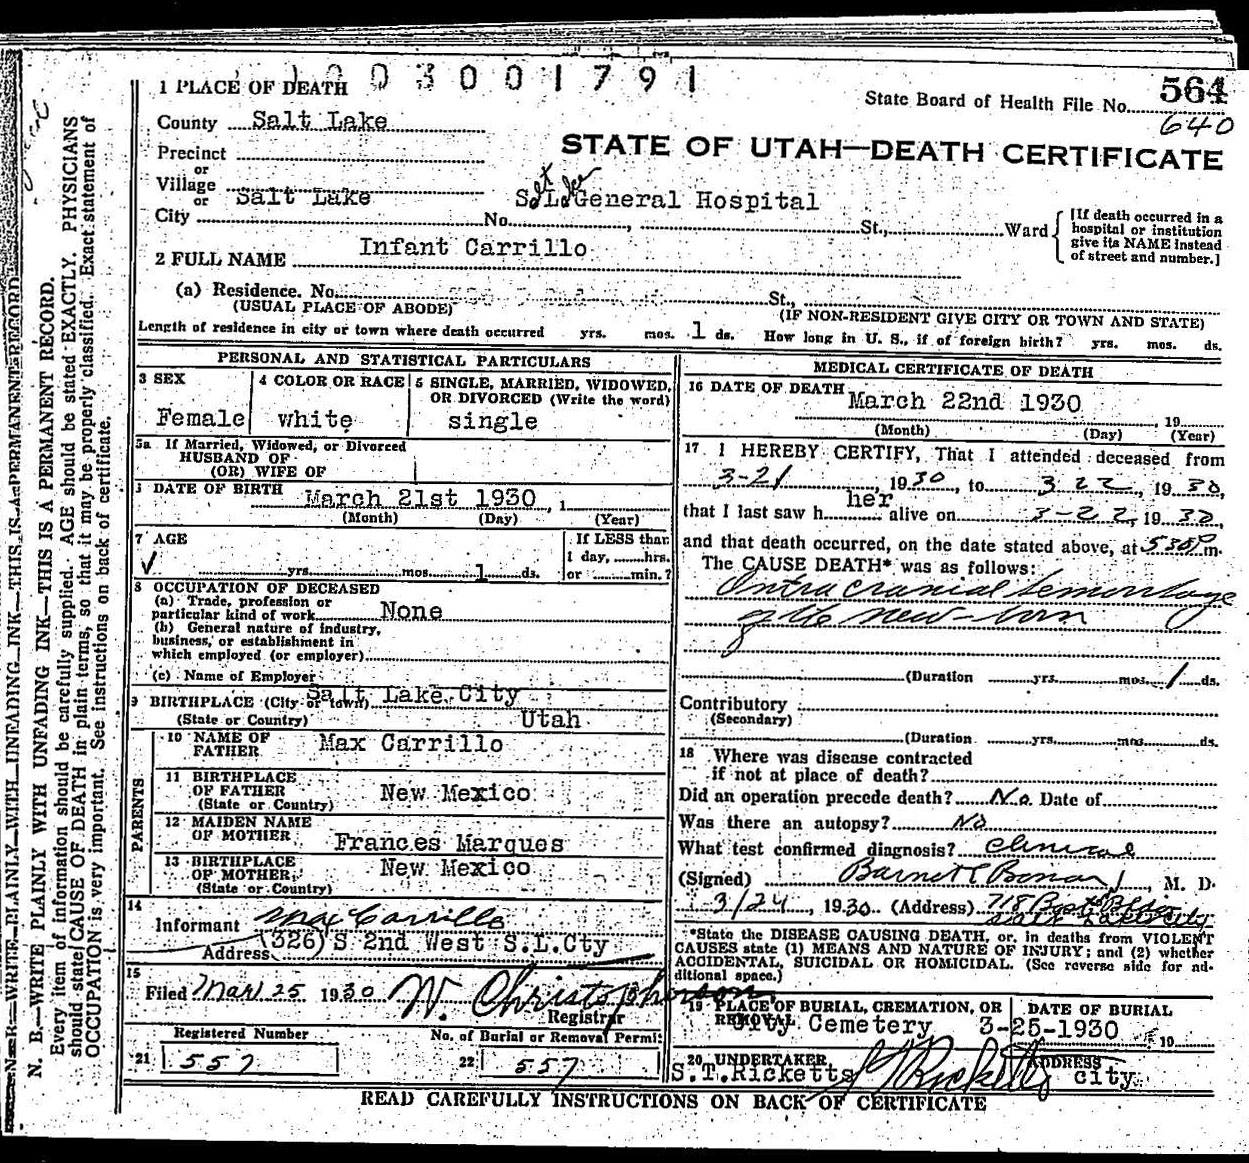 1003001791
1 PLACE OF DEATH
State Board of Health File No. 564
640
County Salt Lake
STATE OF UTAH—DEATH CERTIFICATE
Precinct
or
Village
or Salt Lake S. L. General Hospital
City No. , St., Ward
[If death occurred in a
hospital or institution
give its NAME instead
of street and number.]
2 FULL NAME Infant Carrillo
(a) Residence. No. St.,
(USUAL PLACE OF ABODE) (IF NON-RESIDENT GIVE CITY OR TOWN AND STATE)
Length of residence in city or town where death occurred yrs. mos. 1 ds. How long in U. S., if of foreign birth? yrs. mos. ds.
PERSONAL AND STATISTICAL PARTICULARS
3 SEX
Female
4 COLOR OR RACE
white
5 SINGLE, MARRIED, WIDOWED,
OR DIVORCED (Write the word)
single
5a If Married, Widowed, or Divorced
HUSBAND OF
(OR) WIFE OF
DATE OF BIRTH March 21st 1930, 1
(Month) (Day) (Year)
7 AGE
yrs. mos. 1 ds.
If LESS than
1 day, hrs.
or min.?
8 OCCUPATION OF DECEASED
(a) Trade, profession or
particular kind of work None
(b) General nature of industry,
business, or establishment in
which employed (or employer)
(c) Name of Employer
9 BIRTHPLACE (City or town) Salt Lake City
(State or Country) Utah
PARENTS
10 NAME OF
FATHER Max Carrillo
11 BIRTHPLACE
OF FATHER New Mexico
(State or Country)
12 MAIDEN NAME
OF MOTHER Frances Marques
13 BIRTHPLACE
OF MOTHER New Mexico
(State or Country)
14
Informant Max Carrillo
Address (326) S 2nd West S.L.Cty
15
Filed Mar 25 1930 W. Christopherson
Registrar
Registered Number
21 557
No. of Burial or Removal Permit
22 557
MEDICAL CERTIFICATE OF DEATH
16 DATE OF DEATH March 22nd 1930
, 19
(Month) (Day) (Year)
17 I HEREBY CERTIFY, That I attended deceased from
3-21, 1930, to 3 22, 1930,
that I last saw her alive on 3-22, 1930,
and that death occurred, on the date stated above, at 530P m.
The CAUSE DEATH* was as follows:
Intracranial hemorrhage
of the new-born
(Duration yrs. mos. 1 ds.
Contributory
(Secondary)
(Duration yrs. mos. ds.
18 Where was disease contracted
if not at place of death?
Did an operation precede death? No. Date of
Was there an autopsy? No
What test confirmed diagnosis? Clinical
(Signed) Barnet E Bonar, M. D.
3/24, 1930 (Address) 718 Bldg
Salt Lake City
*State the DISEASE CAUSING DEATH, or, in deaths from VIOLENT
CAUSES state (1) MEANS AND NATURE OF INJURY; and (2) whether
ACCIDENTAL, SUICIDAL OR HOMICIDAL. (See reverse side for ad-
ditional space.)
19 PLACE OF BURIAL, CREMATION, OR
REMOVAL City Cemetery
DATE OF BURIAL
3-25-1930 19
20 UNDERTAKER
S.T.Ricketts S T Ricketts
ADDRESS
city
READ CAREFULLY INSTRUCTIONS ON BACK OF CERTIFICATE
N. B.—WRITE PLAINLY—WITH UNFADING INK—THIS IS A PERMANENT RECORD
N. B.—WRITE PLAINLY WITH UNFADING INK—THIS IS A PERMANENT RECORD.
Every item of information should be carefully supplied. AGE should be stated EXACTLY. PHYSICIANS
should state CAUSE OF DEATH in plain terms, so that it may be properly classified. Exact statement of
OCCUPATION is very important. See instructions on back of certificate.